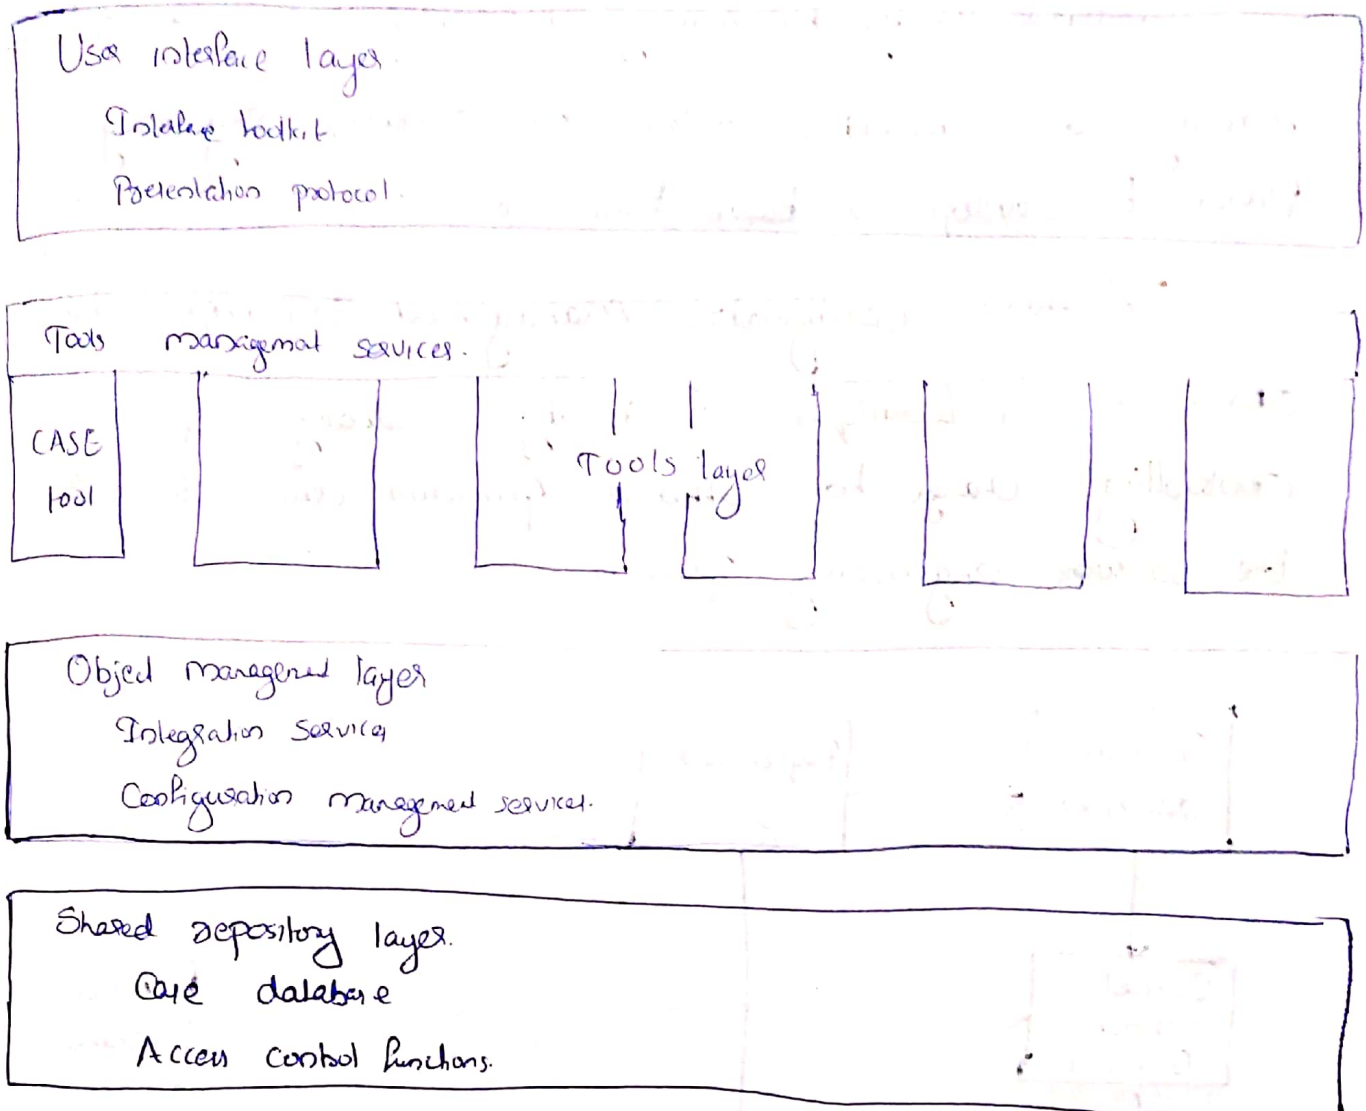 User interface layer
Interface toolkit
Presentation protocol.
Tools management services.
CASE
tool
Tools layer
Object management layer
Integration services
Configuration management services.
Shared repository layer.
Case database
Access control functions.